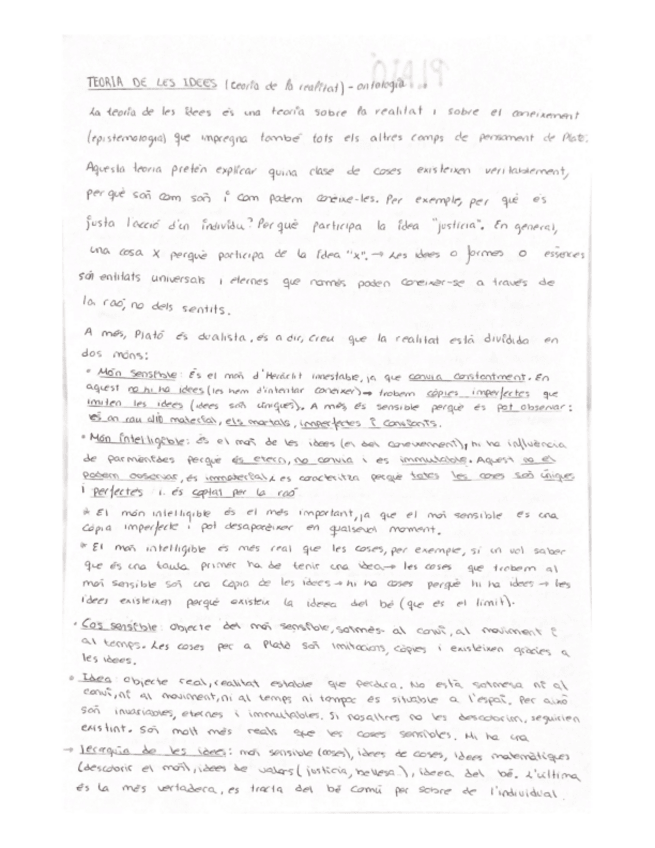 TEORIA DE LES IDEES (teoria de la realitat) - ontologia
La teoria de les idees és una teoria sobre la realitat i sobre el coneixement
(epistemologia) que impregna també tots els altres camps de pensament de Plató.
Aquesta teoria pretén explicar quina classe de coses existeixen veritablement,
per què són com són i com podem conèixe-les. Per exemple, per què és
justa l'acció d'un individu? Perquè participa la idea "justícia". En general,
una cosa X perquè participa de la idea "X". → Les idees o formes o essències
són entitats universals i eternes que només poden conèixer-se a través de
la raó, no dels sentits.
A més, Plató és dualista, és a dir, creu que la realitat està dividida en
dos móns:
• Món sensible: És el món d'Heràclit inestable, ja que canvia constantment. En
aquest no hi ha idees (les hem d'intentar conèixer) → trobem còpies imperfectes que
imiten les idees (idees són úniques). A més és sensible perquè és pot observar:
és on cau allò material, els mortals, imperfectes i canviants.
• Món intel·ligible: és el món de les idees (el del coneixement), hi ha influència
de parmenides perquè és etern, no canvia i es immutable. Aquest no el
podem observar, és immaterial i es caracteritza perquè totes les coses són úniques
i perfectes i és captat per la raó
* El món intel·ligible és el més important, ja que el món sensible es una
còpia imperfecte i pot desaparèixer en qualsevol moment.
* El món intel·ligible és més real que les coses, per exemple, si un vol saber
que és una taula primer ha de tenir una idea → les coses que trobem al
món sensible són una còpia de les idees → hi ha coses perquè hi ha idees → les
idees existeixen perquè existeix la ideea del bé (que és el límit).
• Cos sensible: objecte del món sensible, sotmès al canvi, al moviment i
al temps. Les coses per a Plató són imitacions, còpies i existeixen gràcies a
les idees.
• Idea: objecte real, realitat estable que perdura. No està sotmesa ni al
canvi, ni al moviment, ni al temps ni tampoc és situable a l'espai. Per això
són invariables, eternes i immutables. Si nosaltres no les descobrim, seguirien
existint. Són molt més reals que les coses sensibles. Hi ha una
→ Jerarquia de les idees: món sensible (coses), idees de coses, idees matemàtiques
(descobrir el món, idees de valors (justícia, bellesa), ideea del bé. L'última
és la més vertadera, es tracta del bé comú per sobre de l'individual.